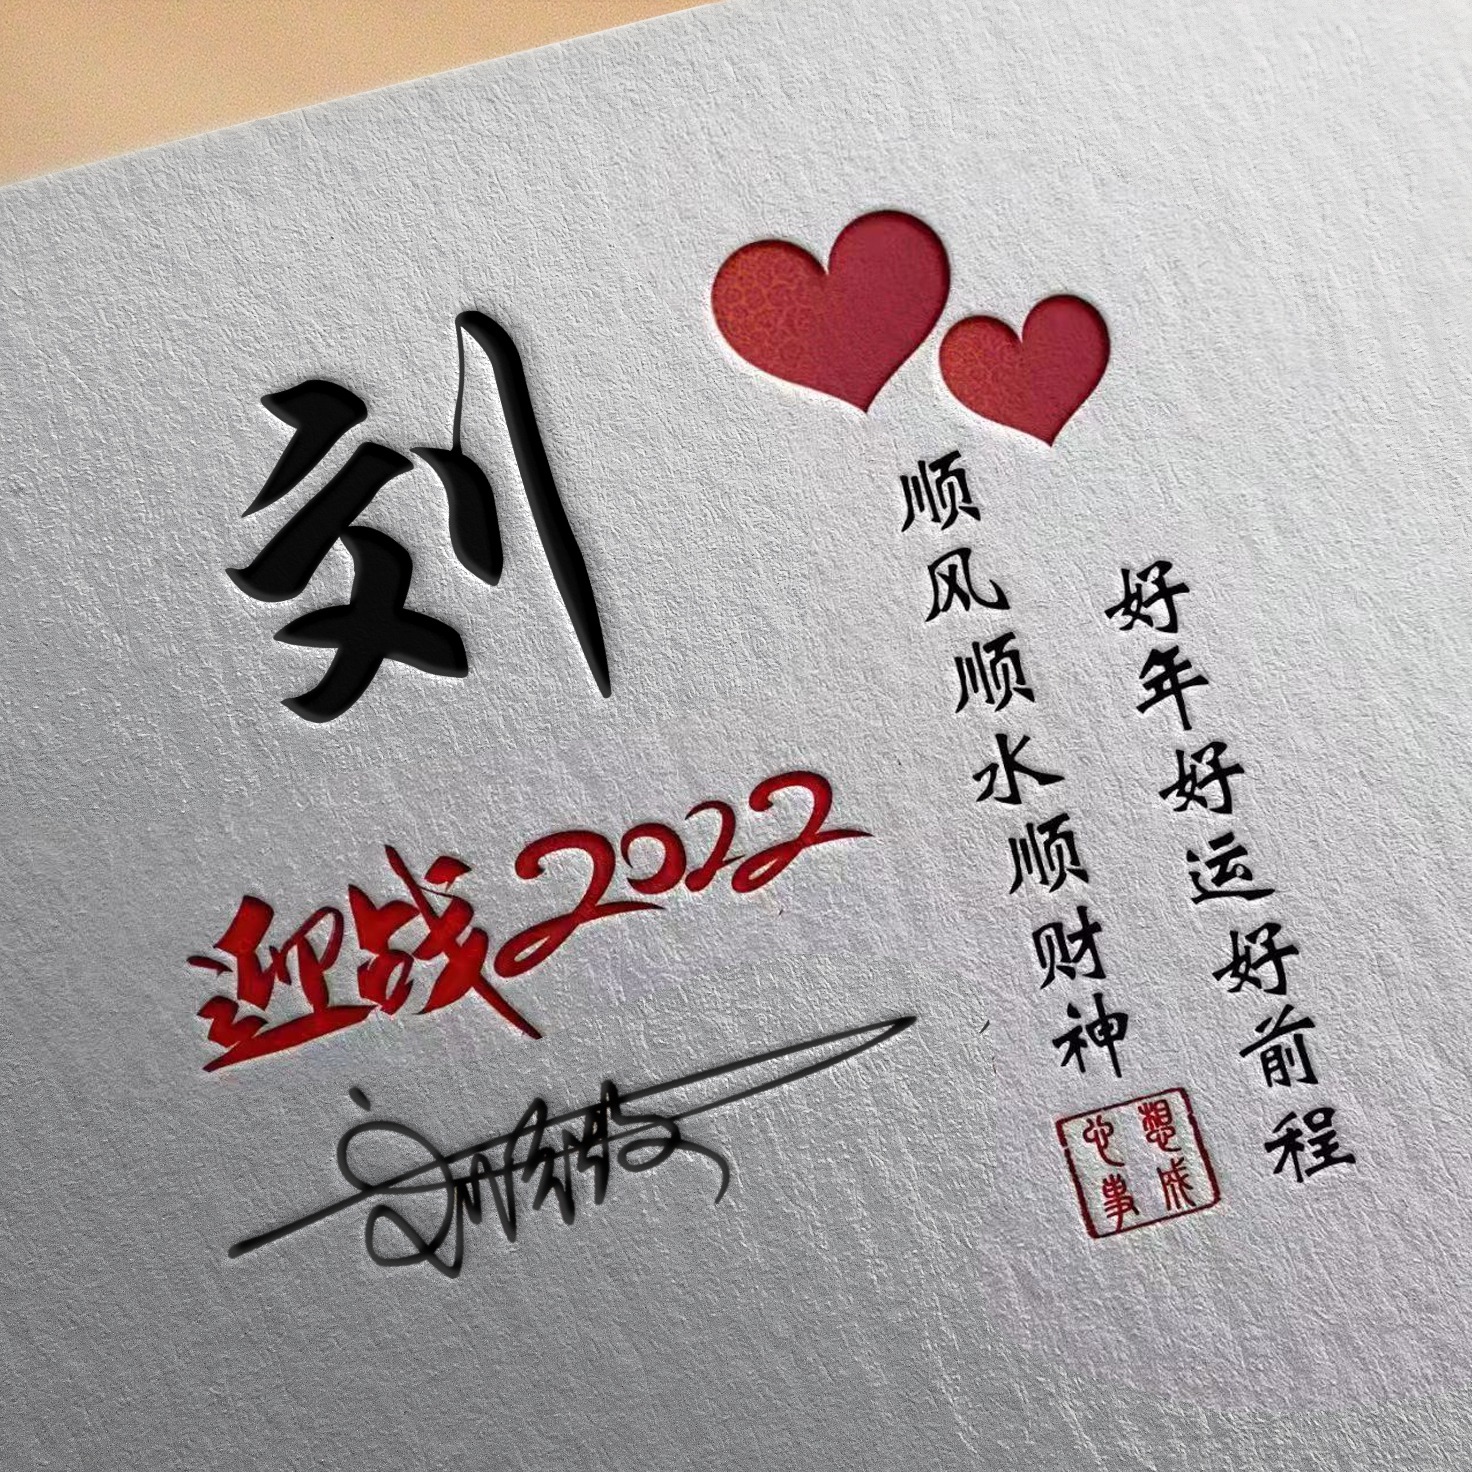 刘
迎战2022
好年好运好前程
顺风顺水顺财神
心想事成